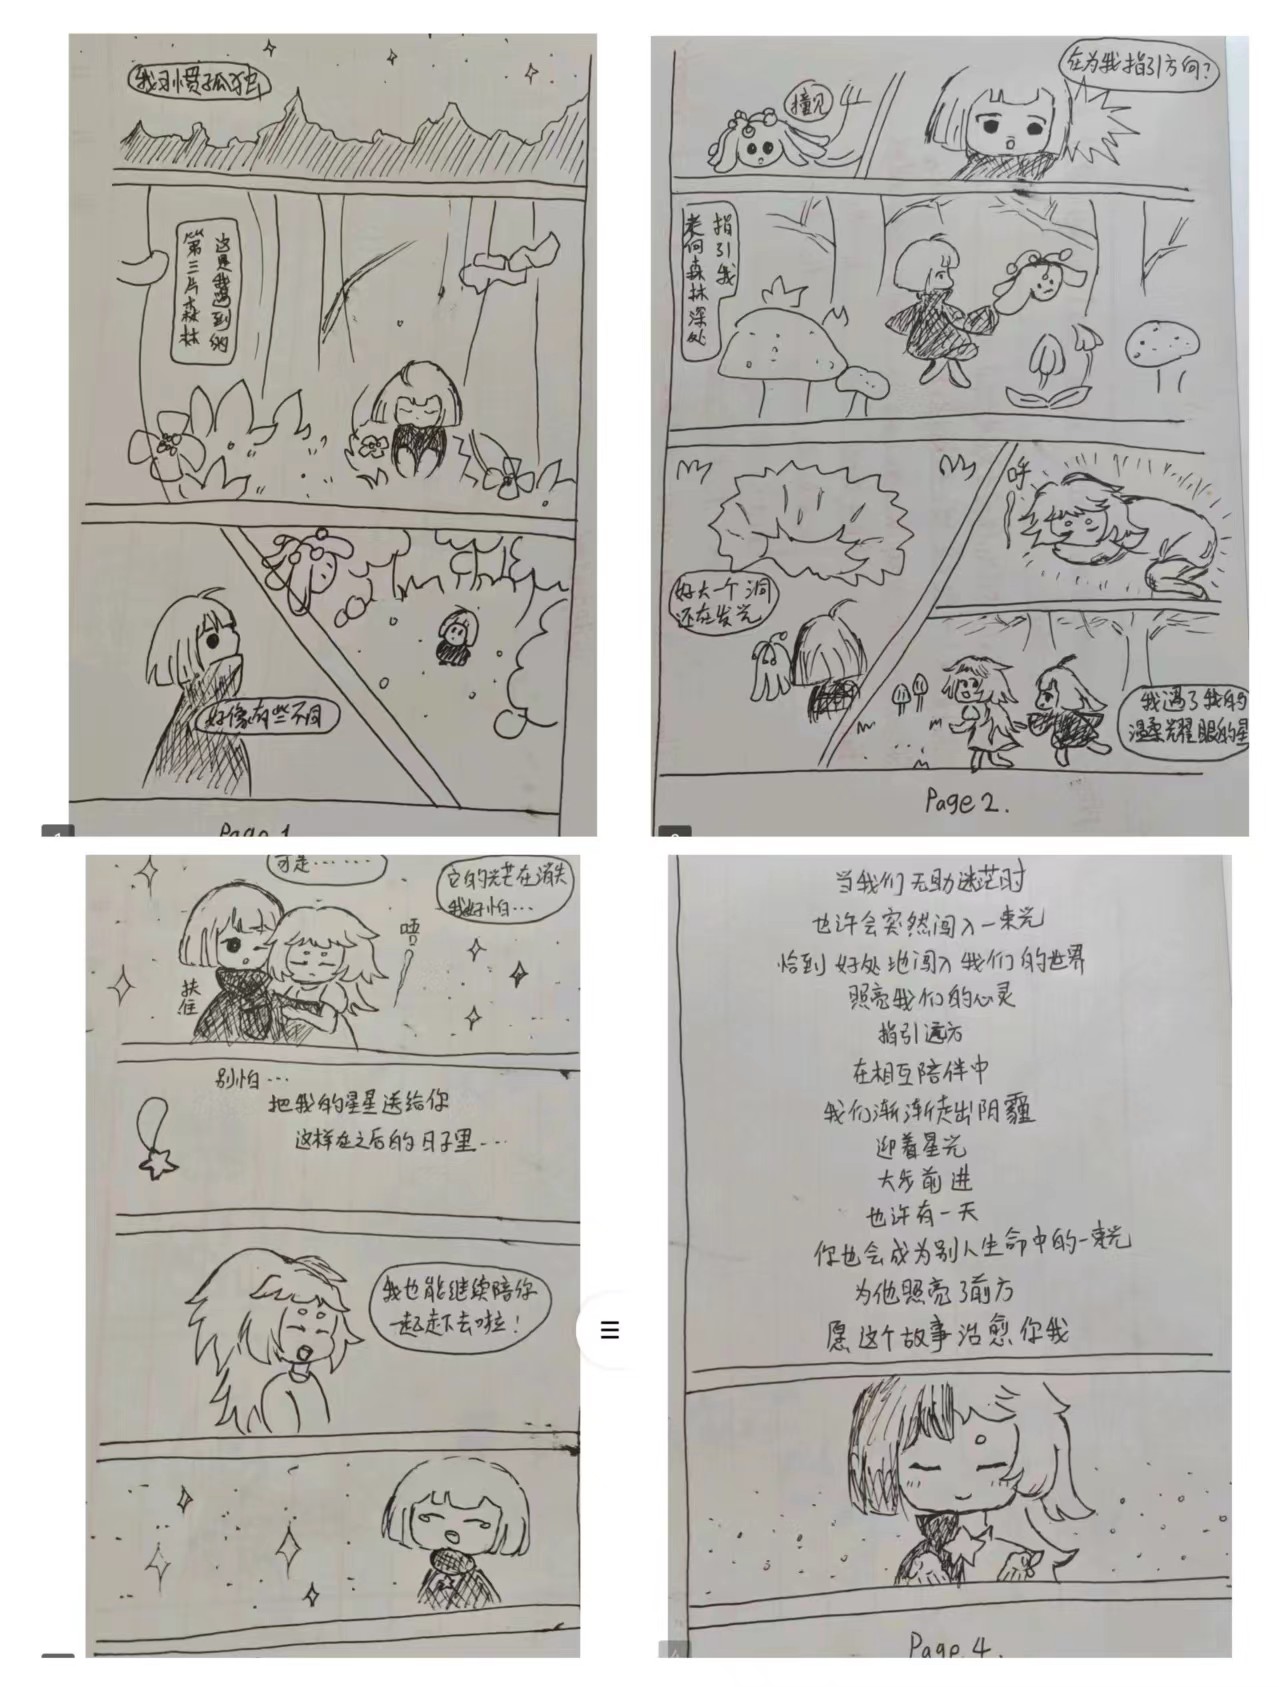 我习惯孤独
这是我遇到的
第三片森林
好像有些不同
Page 1
撞见
在为我指引方向?
指引我
走向森林深处
好大一个洞
还在发光
呼
我遇了我的
温柔耀眼的星
Page 2.
可是······
它的光芒在消失
我好怕···
唔
扶住
别怕···
把我的星星送给你
这样在之后的日子里···
我也能继续陪你
一起走下去啦!
当我们无助迷茫时
也许会突然闯入一束光
恰到好处地闯入我们的世界
照亮我们的心灵
指引远方
在相互陪伴中
我们渐渐走出阴霾
迎着星光
大步前进
也许有一天
你也会成为别人生命中的一束光
为他照亮了前方
愿这个故事治愈你我
Page 4.